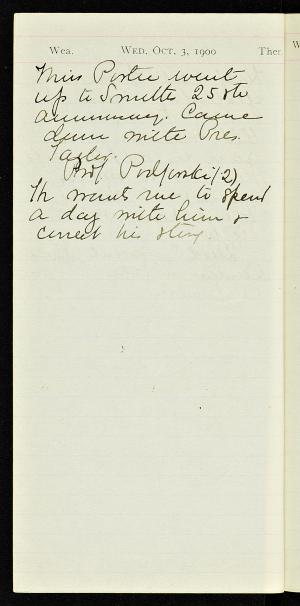 Wea. WED, OCT. 3, 1900 Ther
W
Miss Porter went
up to Smith's 25th
anniversary. Came
down with Pres.
Taylor.
Prof. (2)
He wants me to spend
a day with him &
correct his story.